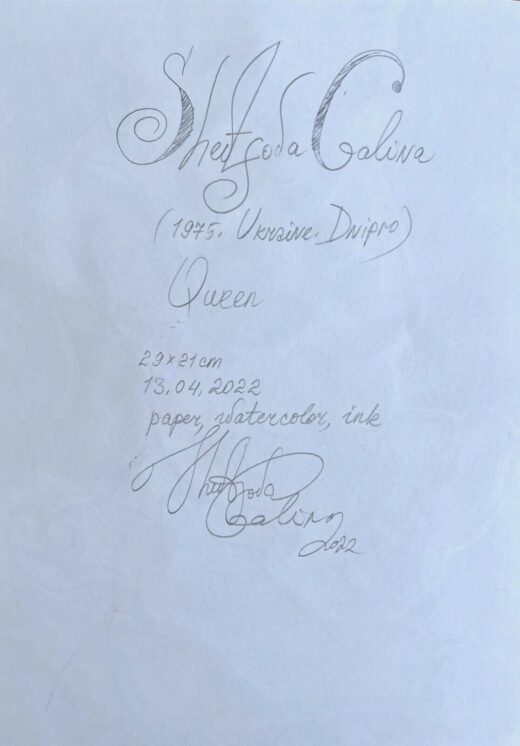 Sheitgoda Galina
(1975. Ukraine. Dnipro)
Queen
29x21cm
13.04.2022
paper, watercolor, ink
Galina
2022